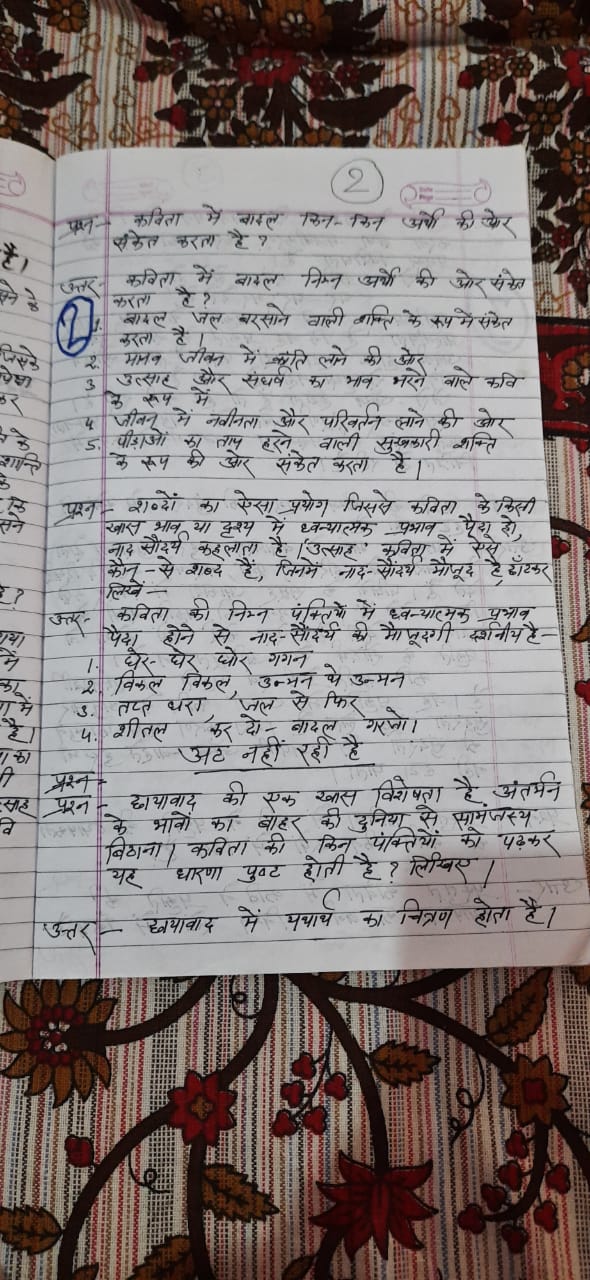 2
Date
Page
प्रश्न- कविता में बादल किन-किन अर्थों की ओर
संकेत करता है ?
उत्तर- कविता में बादल निम्न अर्थों की ओर संकेत
करता है ?
2
1. बादल जल बरसाने वाली शक्ति के रूप में संकेत
करता है।
2. मानव जीवन में क्रांति लाने की ओर
3 उत्साह और संघर्ष का भाव भरने वाले कवि
के रूप में
4 जीवन में नवीनता और परिवर्तन लाने की ओर
5. पीड़ाओं का ताप हरने वाली सुखकारी शक्ति
के रूप की ओर संकेत करता है।
प्रश्न- शब्दों का ऐसा प्रयोग जिससे कविता के किसी
खास भाव या दृश्य में ध्वन्यात्मक प्रभाव पैदा हो,
नाद सौंदर्य कहलाता है। 'उत्साह' कविता में ऐसे
कौन-से शब्द हैं, जिनमें नाद-सौंदर्य मौजूद है, छाँटकर
लिखें-
उत्तर- कविता की निम्न पंक्तियों में ध्वन्यात्मक प्रभाव
पैदा होने से नाद-सौंदर्य की मौजूदगी दर्शनीय है-
1. घेर-घेर घोर गगन
2. विकल विकल, उन्मन थे उन्मन
3. तप्त धरा, जल से फिर
4. शीतल कर दो- बादल गरजो।
अट नहीं रही है
प्रश्न-
प्रश्न- छायावाद की एक खास विशेषता है अंतर्मन
के भावों का बाहर की दुनिया से सामंजस्य
बिठाना। कविता की किन पंक्तियों को पढ़कर
यह धारणा पुष्ट होती है ? लिखिए।
उत्तर- छायावाद में यथार्थ का चित्रण होता है।